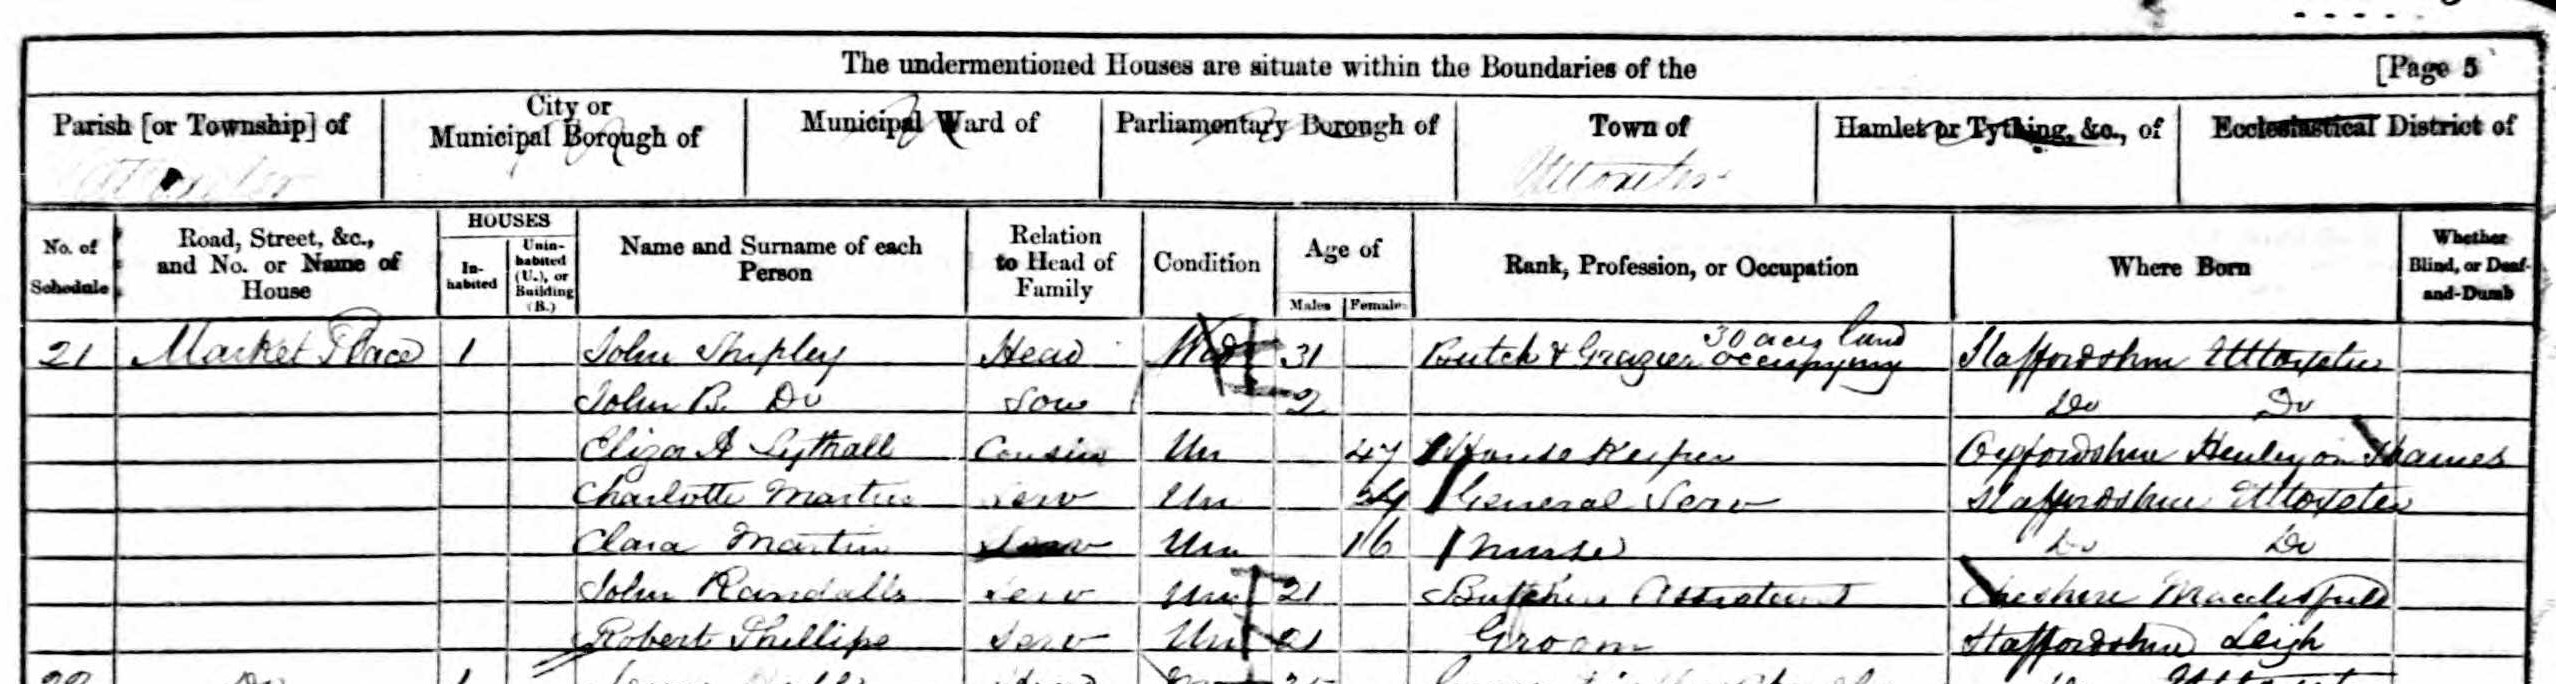 The undermentioned Houses are situate within the Boundaries of the [Page 5
Parish [or Township] of
City or Municipal Borough of
Municipal Ward of
Parliamentary Borough of
Town of
Hamlet or Tything, &c., of
Ecclesiastical District of
Uttoxeter
No. of Schedule
Road, Street, &c., and No. or Name of House
HOUSES
In-habited
Unin-habited (U.), or Building (B.)
Name and Surname of each Person
Relation to Head of Family
Condition
Age of
Males
Females
Rank, Profession, or Occupation
Where Born
Whether Blind, or Deaf-and-Dumb
21 Market Place 1 John Shipley Head Widr 31 Butch & Grazier occupying 30 acres land Staffordshire Uttoxeter
John B. Do Son 2 Do Do
Eliza A Lythall Cousin Un 47 House Keeper Oxfordshire Henley on Thames
Charlotte Martin Serv Un General Serv Staffordshire Uttoxeter
Clara Martin Serv Un 16 Nurse Do Do
John Randalls Serv Un 21 Butcher Assistant Cheshire Macclesfield
Robert Phillips Serv Un 21 Groom Staffordshire Leigh
22 Do 1